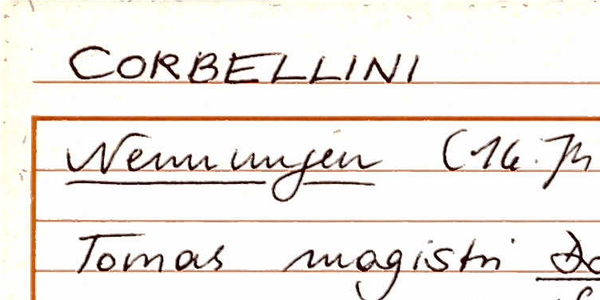 CORBELLINI
Nennungen (16. Jh
Tomas magistri Do